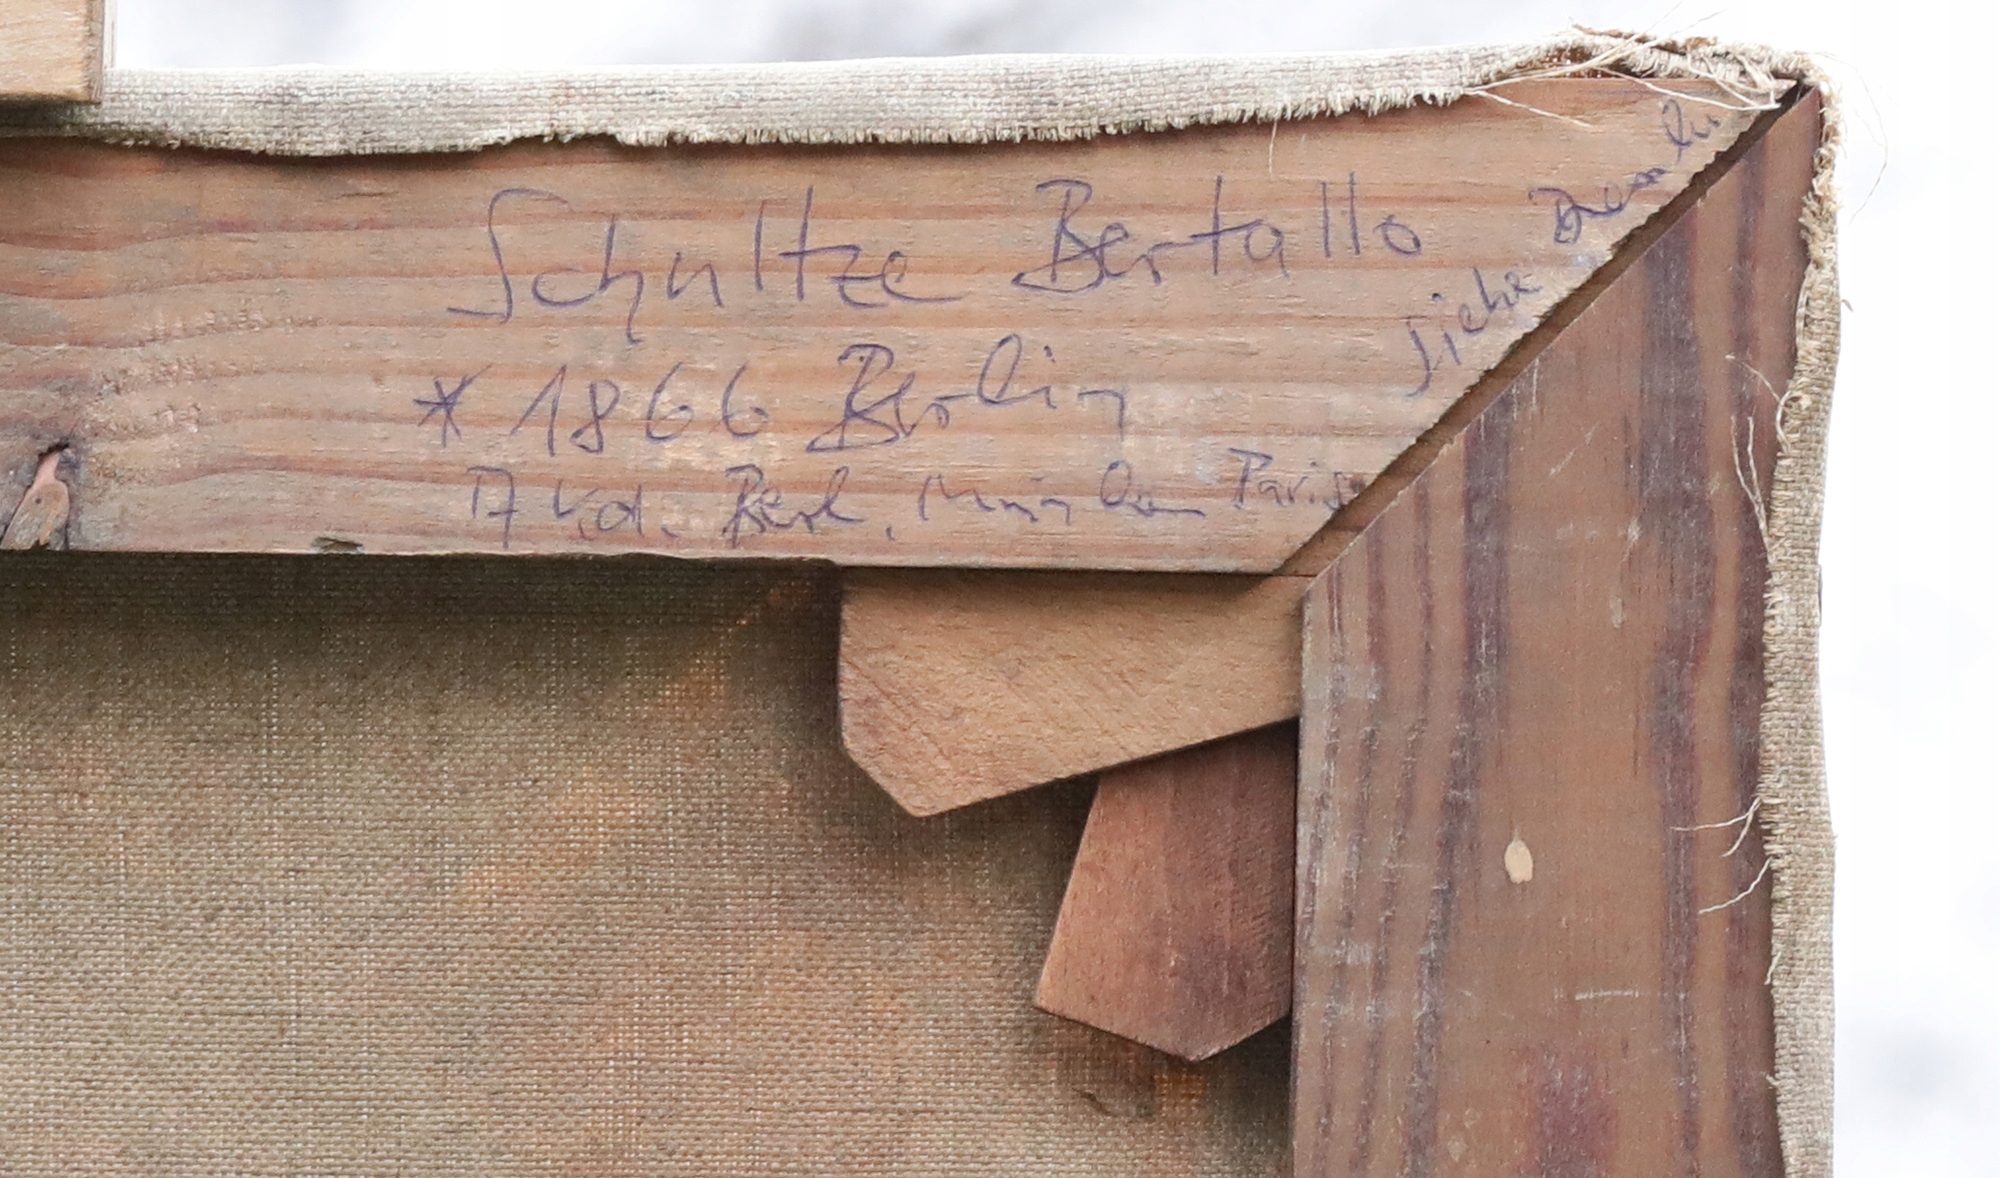 Schultze Bertallo
* 1866 Berlin
Akad. Berl. München Paris
siehe